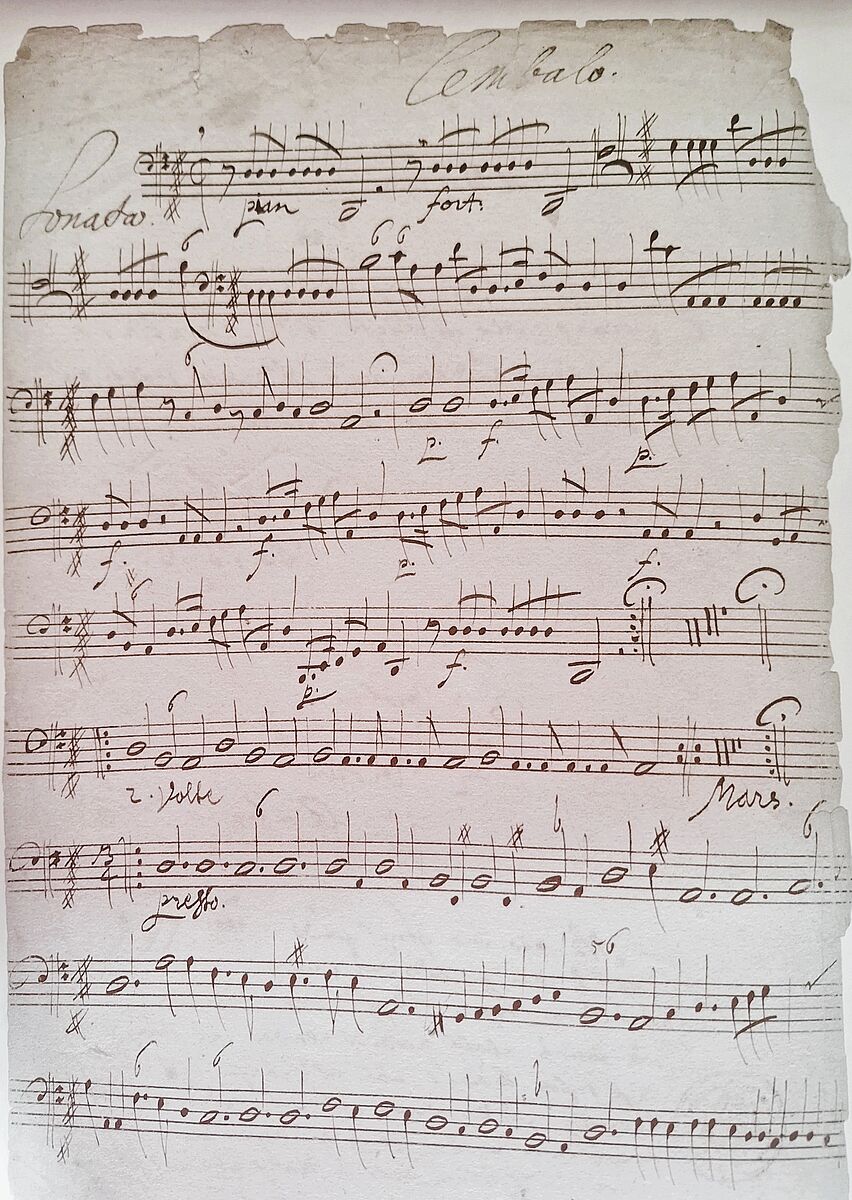 Cembalo.
Sonata.
pian fort:
6 6 6 6
6
p. f. p.
f. f. p. f.
6
p. f.
6
2. Volte Mars.
6 6 6
3 4
presto.
56
6 6 6